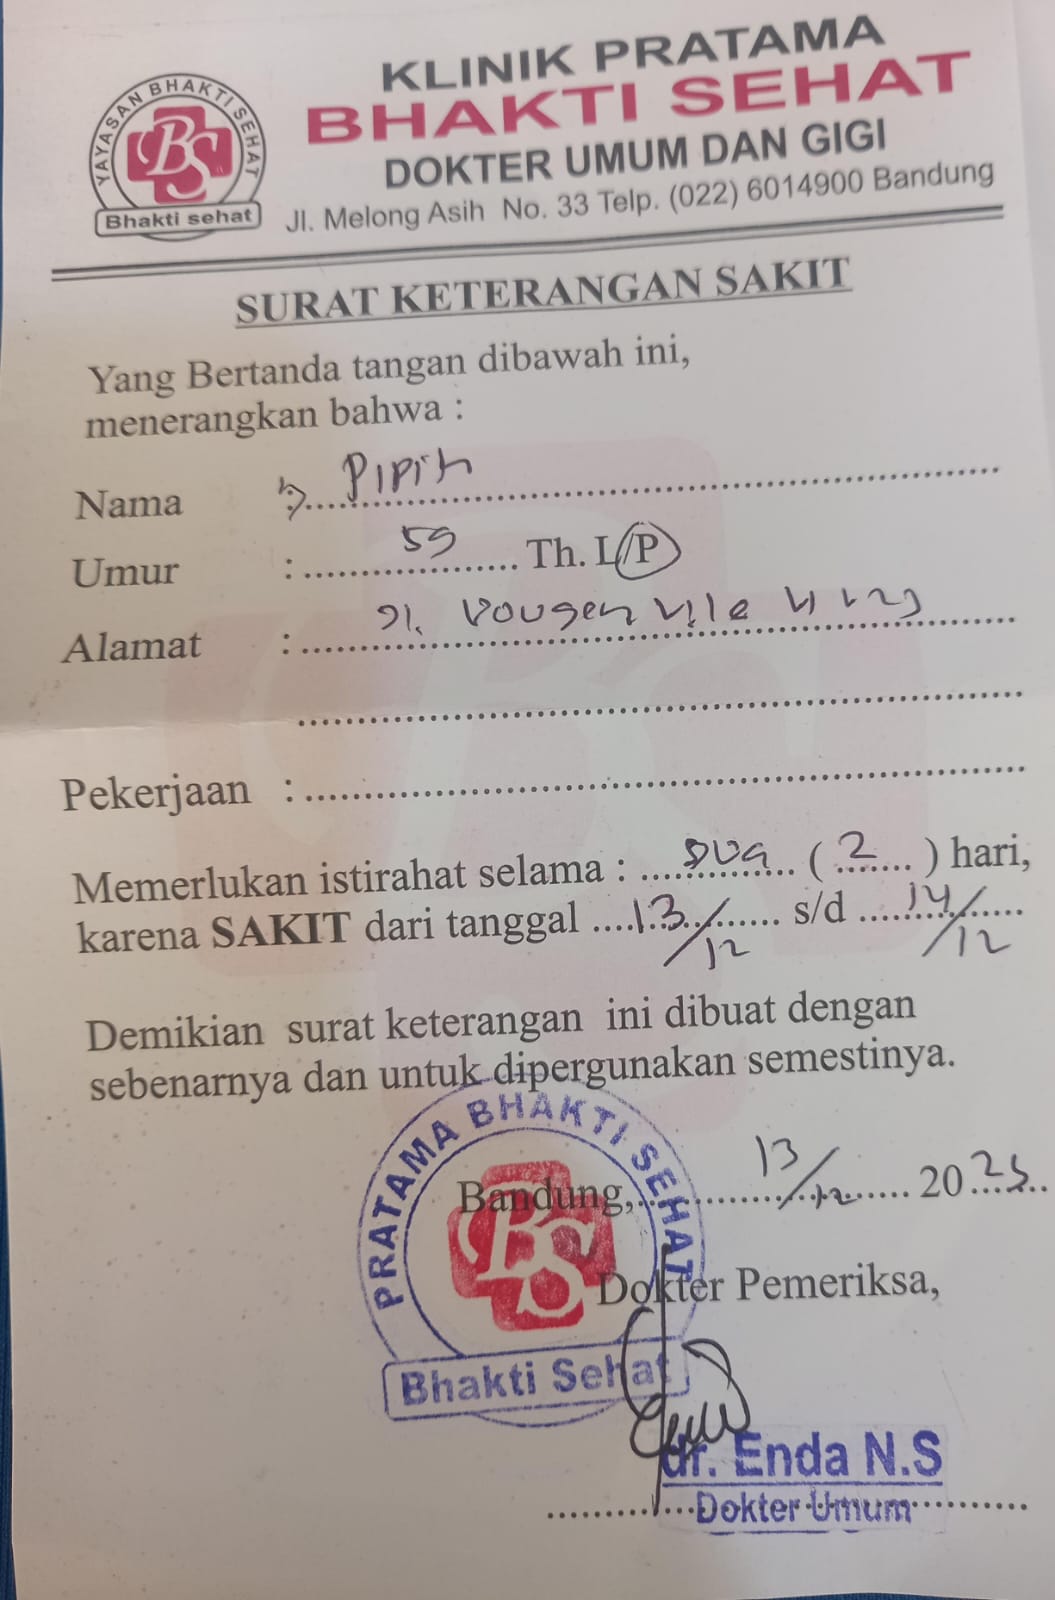 YAYASAN BHAKTI SEHAT
BS
Bhakti sehat
KLINIK PRATAMA
BHAKTI SEHAT
DOKTER UMUM DAN GIGI
Jl. Melong Asih No. 33 Telp. (022) 6014900 Bandung
SURAT KETERANGAN SAKIT
Yang Bertanda tangan dibawah ini,
menerangkan bahwa :
Nama : Pipih
Umur : 59 Th. L/P
Alamat :
Pekerjaan :
Memerlukan istirahat selama : DUA ( 2 ) hari,
karena SAKIT dari tanggal 13/12 s/d 14/12
Demikian surat keterangan ini dibuat dengan
sebenarnya dan untuk dipergunakan semestinya.
PRATAMA BHAKTI SEHAT
BS
Bhakti Sehat
Bandung, 13/12 2025
Dokter Pemeriksa,
dr. Enda N.S
Dokter Umum